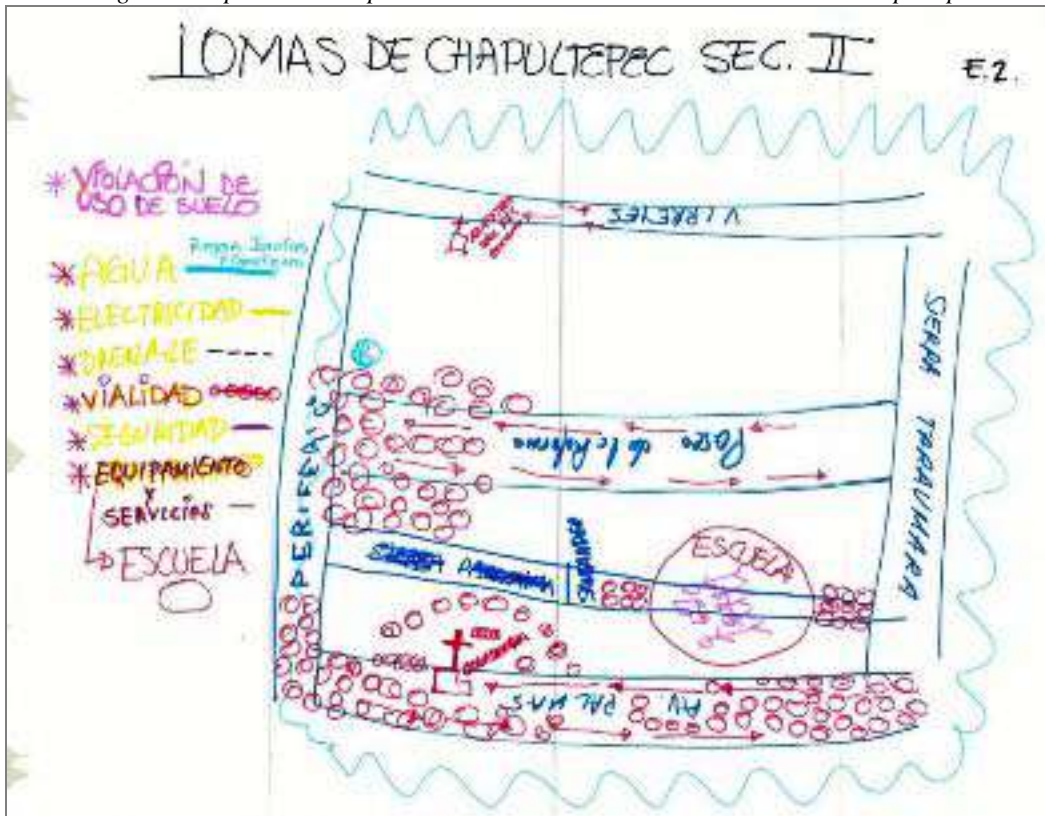 LOMAS DE CHAPULTEPEC SEC. II
E.2.
* VIOLACIÓN DE
USO DE SUELO
* AGUA
* ELECTRICIDAD
* DRENAJE
* VIALIDAD
* SEGURIDAD
* EQUIPAMIENTO
Y
SERVICIOS
ESCUELA
VIRREYES
SIERRA TARAUMARA
PERIFERICO
Paseo de la Reforma
SIERRA
ESCUELA
AV. PALMAS